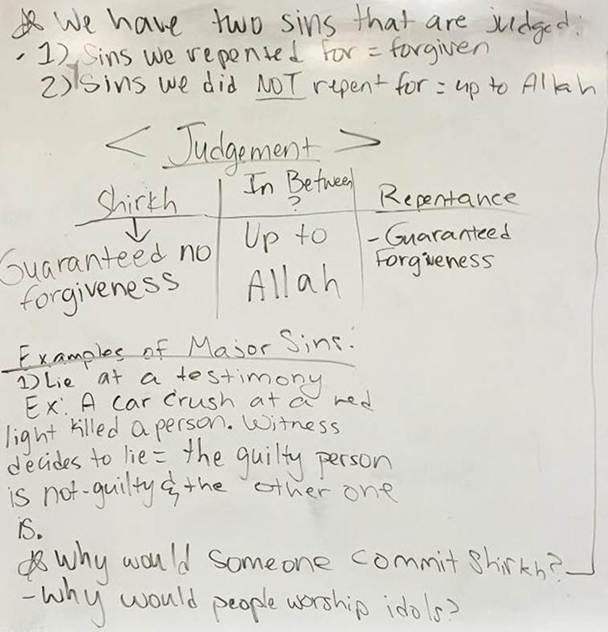 * We have two sins that are judged:
- 1) Sins we repented for = forgiven
2) Sins we did NOT repent for = up to Allah
< Judgement >
Shirkh
In Between
?
Repentance
Guaranteed no
forgiveness
Up to
Allah
- Guaranteed
Forgiveness
Examples of Major Sins:
1) Lie at a testimony
Ex: A car crush at a red
light killed a person. Witness
decides to lie = the guilty person
is not-guilty & the other one
is.
* Why would someone commit Shirkh?
- Why would people worship idols?